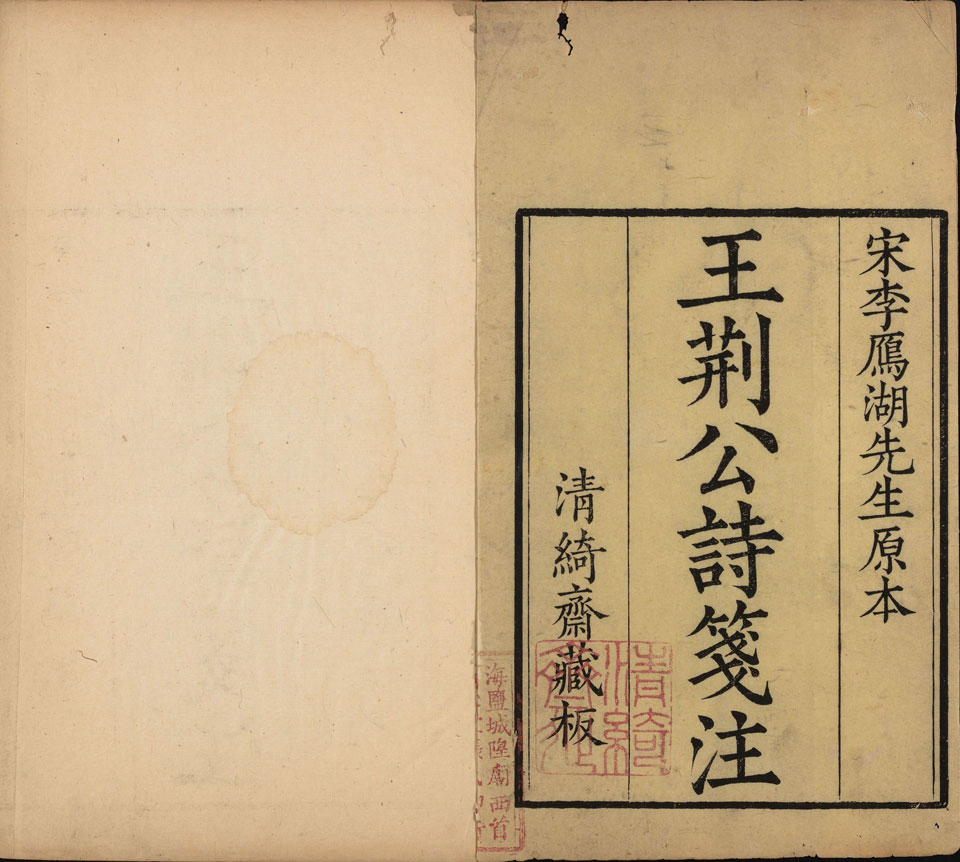 宋李鴈湖先生原本
王荆公詩箋注
清綺齋藏板
清綺
海鹽城隍廟西首